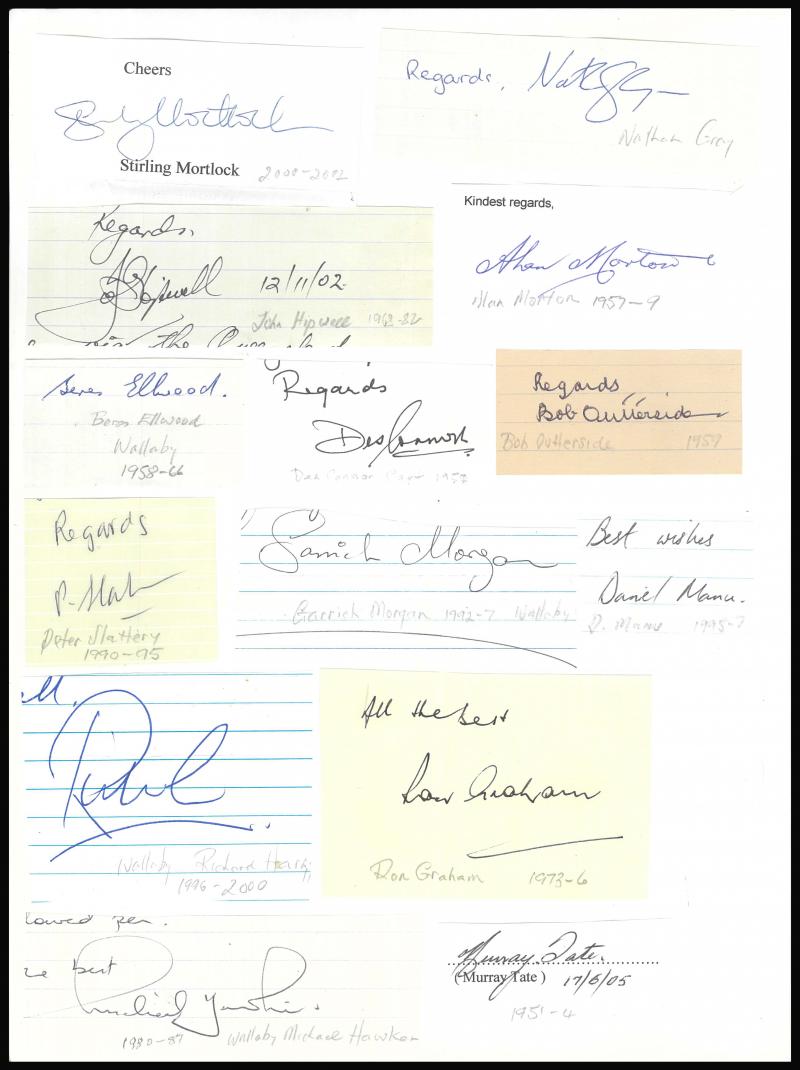 Cheers
Stirling Mortlock
Stirling Mortlock 2000-2002
Regards, Nathan Grey
Nathan Grey
Regards,
J Hipwell 12/11/02.
John Hipwell 1968-82
Kindest regards,
Alan Morton
Alan Morton 1957-9
Beres Ellwood.
Beres Ellwood
Wallaby
1958-66
Regards
Des Connor
Des Connor 1957
Regards
Bob Outterside
Bob Outterside 1959
Regards
P. Slattery
Peter Slattery
1990-95
Garrick Morgan
Garrick Morgan 1992-7 Wallaby
Best wishes
Daniel Manu.
D. Manu 1995-7
Richard
Wallaby Richard Harry
1996-2000
All the best
Ron Graham
Ron Graham 1973-6
best
1980-87 Wallaby Michael Hawker
Murray Tate.
(Murray Tate) 17/6/05
1951-4